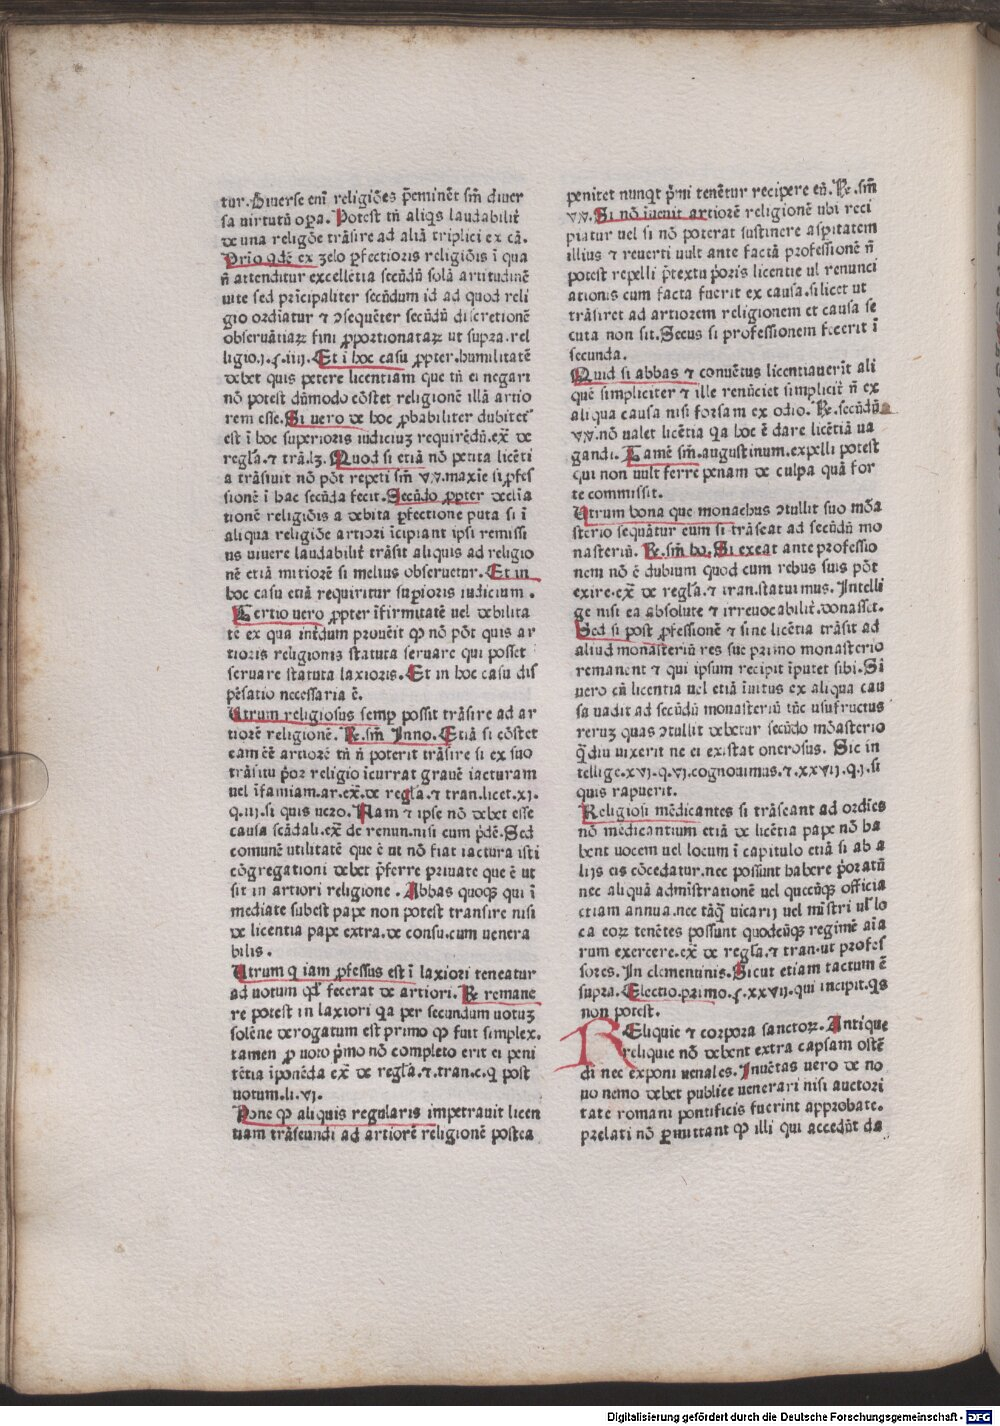 tur. Diuerse eni religiões p̄eminēt sm̄ diuer
sa uirtutū opa. Potest tn̄ aliqs laudabilit̄
de una religiōe trāsire ad aliā triplici ex cā.
Prio qdē ex zelo p̱fectioris religiōis ī qua
n̄ attenditur excellētia secūdū solā artitudinē
uite sed prīcipaliter secūdum id ad quod reli
gio ordīatur ⁊ ꝯsequēter secūdū discretionē
obseruātiaꝝ fini ꝓportionataꝝ ut supra. rel
ligio.j.ꝭ.iiij. Et ī hoc casu ꝓpter humilitatē
debet quis petere licentiam que tn̄ ei negari
nō potest dūmodo cōstet religionē illā artio
rem esse. Si uero de hoc ꝓbabiliter dubitet̄
est ī hoc superioris iudiciuʒ requirēdū. ex̄ de
regl̄a. ⁊ trā. lʒ. Quod si etiā nō petita licēti
a trāsiuit nō pōt repeti sm̄ v̄v. maxīe si ꝓfes
sionē ī hac secūda fecit. Secūdo ꝓpter declīa
tionē religiōis a debita ꝑfectione puta si ī
aliqua religiōe artiori īcipiant ipsi remissi
us uiuere laudabilit̄ trāsit aliquis ad religio
nē etiā mitiorē si melius obseruetur. Et in
hoc casu etiā requiritur supīoris iudicium.
Tertio uero ꝓpter īfirmitatē uel debilita
tē ex qua intdum prouēit ꝙ nō pōt quis ar
tioris religionis statuta seruare qui posset
seruare statuta laxioris. Et in hoc casu dis
pēsatio necessaria ē.
Utrum religiosus semp possit trāsire ad ar
tiorē religionē. Re. sm̄ Inno. Etiā si cōstet
eam eē artiorē tn̄ n̄ poterit trāsire si ex suo
trāsitu p̄or religio īcurrat grauē iacturam
uel īfamiam. ar. ex̄. de regl̄a. ⁊ tran. licet. xj.
q. iij. si quis uero. Nam ⁊ ipse nō debet esse
causa scādali. ex̄ de renun. nisi cum p̄dē. Sed
comunē utilitatē que ē ut nō fiat iactura isti
cōgregationi debet p̄ferre priuate que ē ut
sit in artiori religione. Abbas quoqʒ qui ī
mediate subest pape non potest transire nisi
de licentia pape extra. de consu. cum uenera
bilis.
Utrum q iam ꝓfessus est ī laxiori teneatur
ad uotum qd̄ fecerat de artiori. Re remane
re potest in laxiori qa per secundum uotuʒ
solēne derogatum est primo ꝙ fuit simplex.
tamen ꝓ uoto p̄mo nō completo erit ei peni
tētia īponēda ex̄ de regl̄a. ⁊. tran. c. q post
uotum. li. vi.
Pone ꝙ aliquis regularis impetrauit licen
tiam trāseundi ad artiorē religionē postea
penitet nunqt p̄mi tenētur recipere eū. Re. sm̄
v̄v. Si nō īuenit artiorē religionē ubi reci
piatur uel si nō poterat sustinere aspitatem
illius ⁊ reuerti uult ante factā professionē n̄
potest repelli p̄textu p̄oris licentie ul renunci
ationis cum facta fuerit ex causa. si licet ut
trāsiret ad artiorem religionem et causa se
cuta non sit. Secus si professionem fecerit ī
secunda.
Quid si abbas ⁊ conuētus licentiauerīt ali
quē simpliciter ⁊ ille renūciet simplicit̄ n̄ ex
aliqua causa nisi forsam ex odio. Re. secūdū
v̄v. nō ualet licētia qa hoc ē dare licētiā ua
gandi. Tamē sm̄. augustinum. expelli potest
qui non uult ferre penam de culpa quā for
te commissit.
Utrum bona que monachus ꝯtulit suo mōa
sterio sequātur eum si trāseat ad secūdū mo
nasteriū. Re. sm̄ bo. Si exeat ante professio
nem nō ē dubium quod cum rebus suis pōt
exire. ex̄ de regl̄a. ⁊ tran. statuimus. Intelli
ge nisi ea absolute ⁊ irreuocabilit̄. donasset.
Sed si post ꝓfessionē ⁊ sine licētia trāsit ad
aliud monasteriū res sue primo monasterio
remanent ⁊ qui ipsum recipit īputet sibi. Si
uero cū licentia uel etiā īuitus ex aliqua cau
sa uadit ad secūdū monasteriū tūc usufructus
reruʒ quas ꝯtulit debetur secūdo mōasterio
q̄diu uixerit ne ei existat onerosus. Sic in
tellige. xvi. q. vi. cognouimus. ⁊ xxvij. q. j. si
quis rapuerit.
Religiosi mēdicantes si trāseant ad ordīes
nō mēdicantium etiā de licētia pape nō ha
bent uocem uel locum ī capitulo etiā si ab a
lijs eis cōcedatur. nec possunt habere p̄oratū
nec aliquā admīstrationē uel quecūqʒ officia
etiam annua. nec tāq̄ uicarij uel mīstri ul̄ lo
ca eoꝝ tenētes possunt quodcūqʒ regimē aīa
rum exercere. ex̄ de regl̄a. ⁊ tran. ut profes
sores. In clementinis. Sicut etiam tactum ē
supra. Electio. primo. ꝭ. xxvij. qui incipit. qs
non potest.
REliquie ⁊ corpora sanctoꝝ. Antique
reliquie nō debent extra capsam ostē
di nec exponi uenales. Inuētas uero de no
uo nemo debet publice uenerari nisi auctori
tate romani pontificis fuerint approbate.
prelati nō ꝑmittant ꝙ illi qui accedūt da
Digitalisierung gefördert durch die Deutsche Forschungsgemeinschaft - DFG